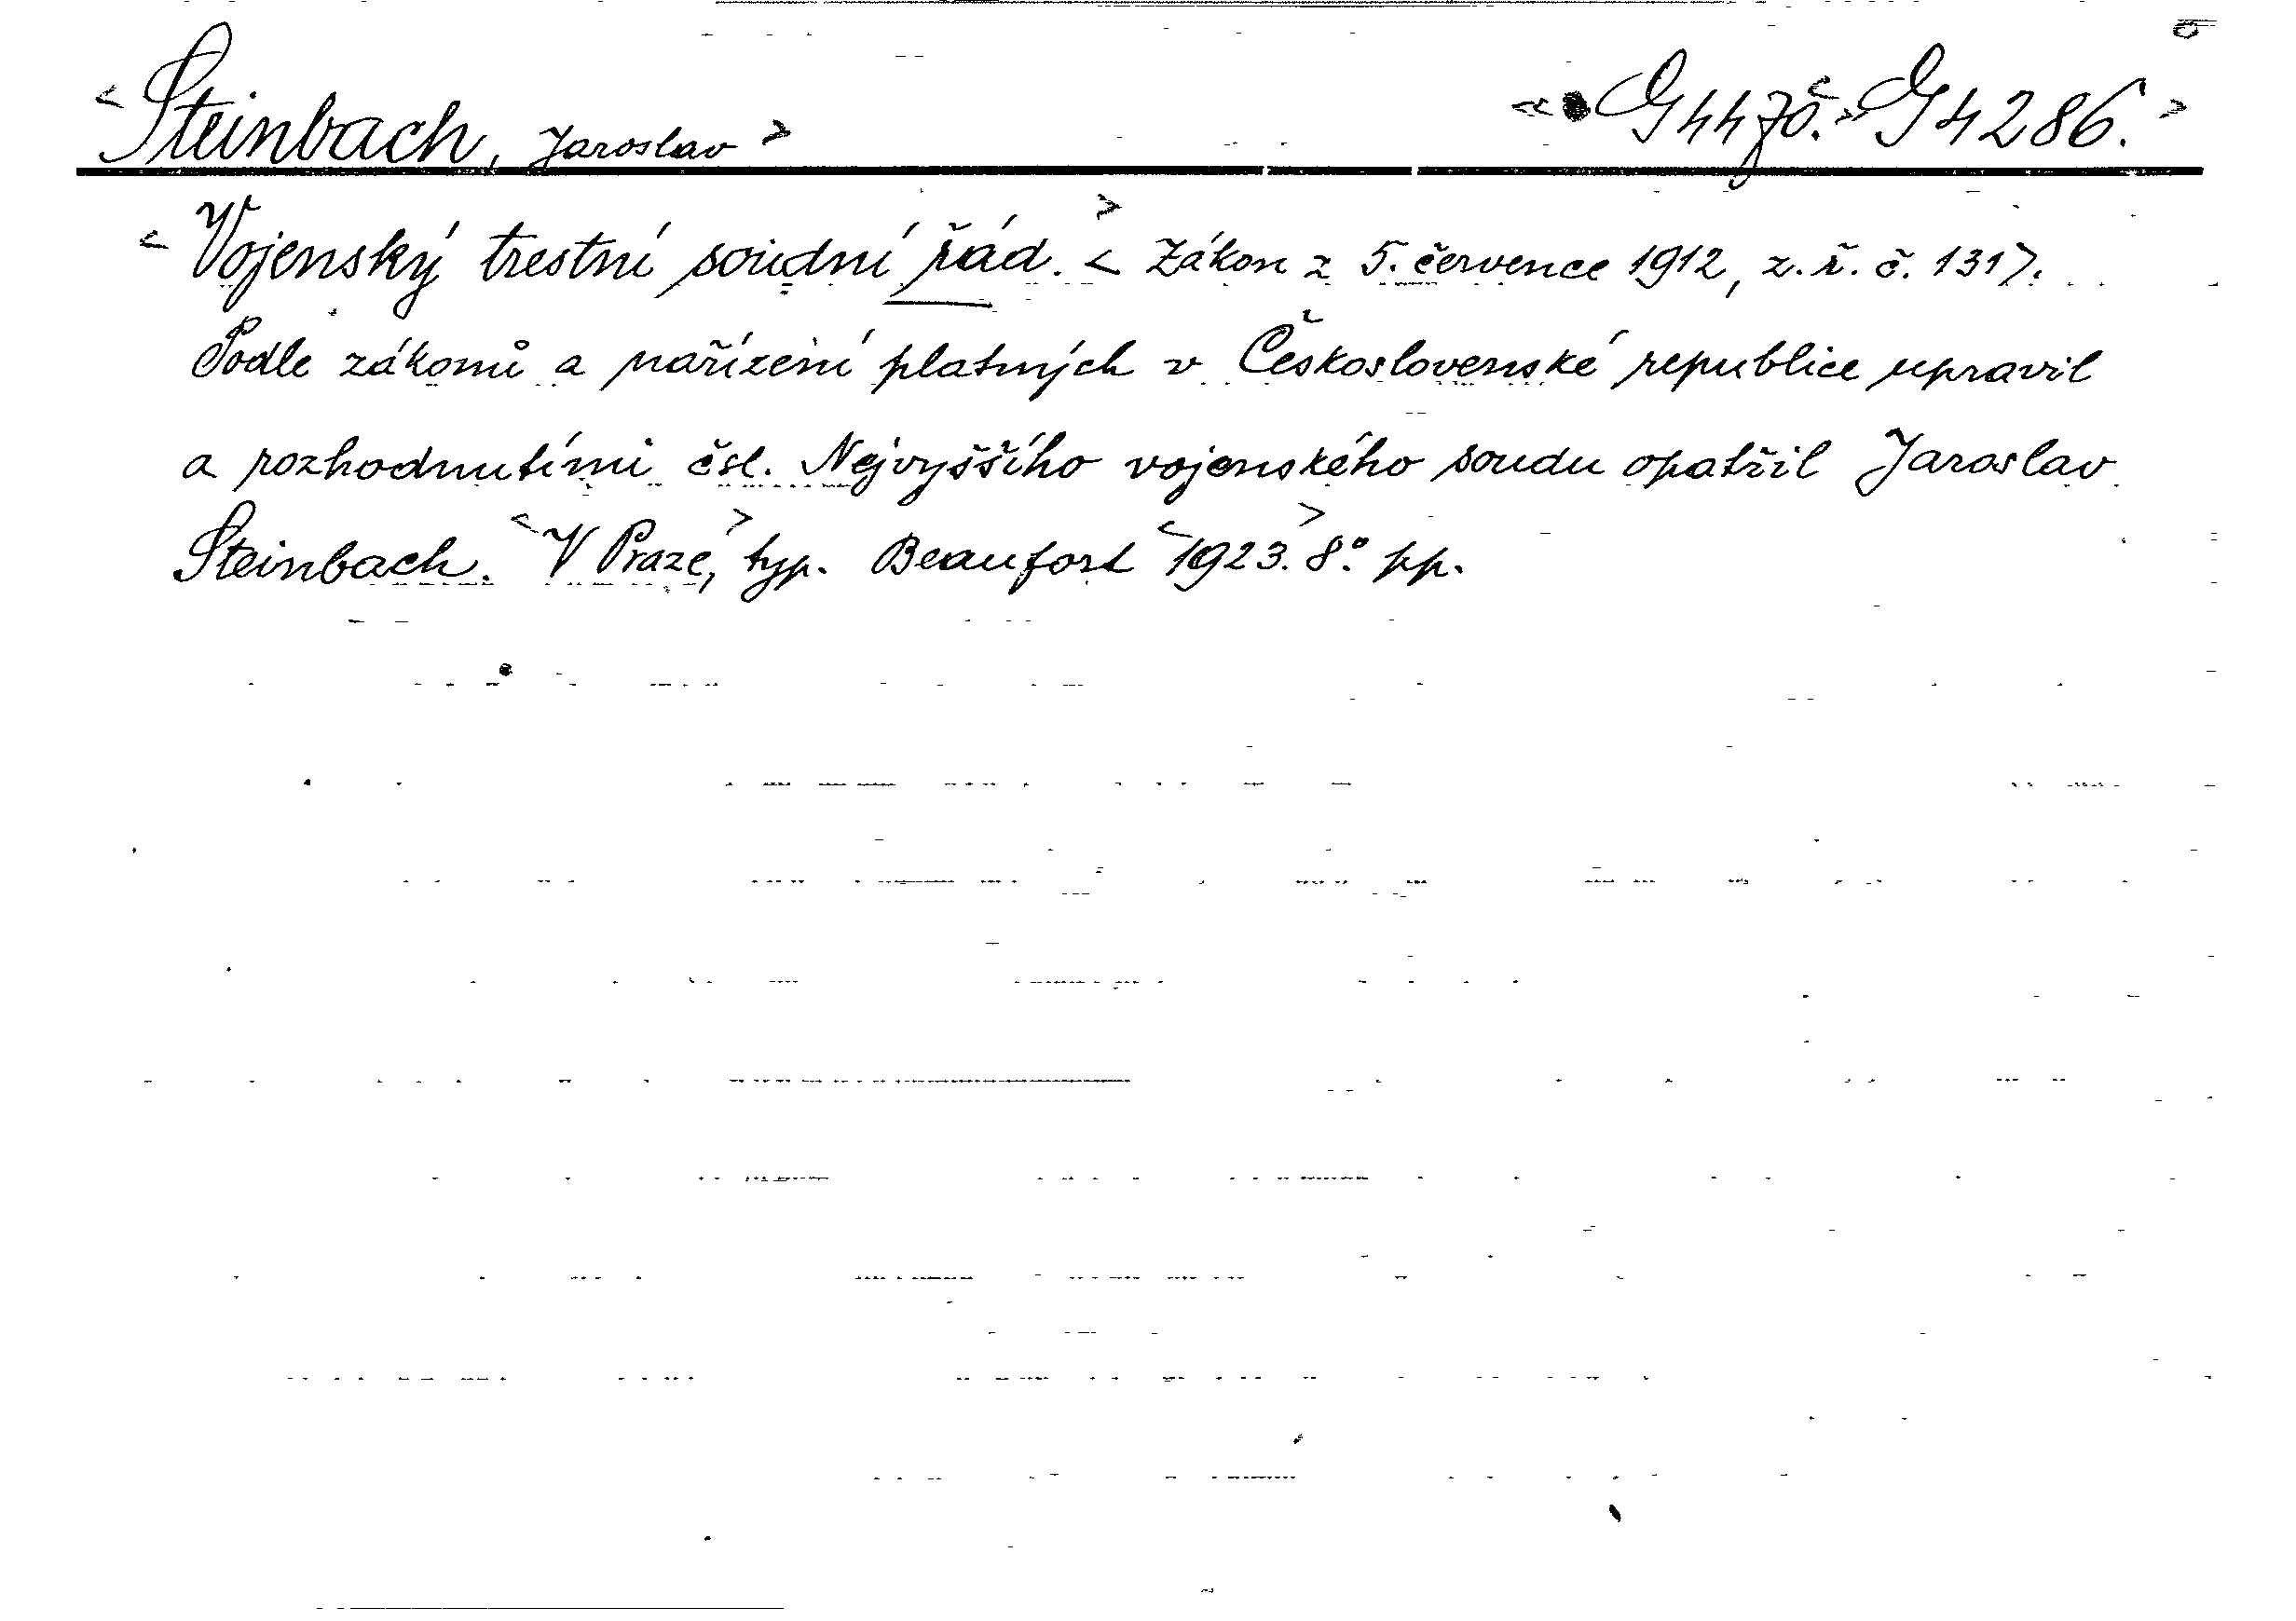 < Steinbach, Jaroslav > « G 4470. » G 4286. >
< Vojenský trestní soudní řád. > < Zákon z 5. července 1912, z. ř. č. 131).
Podle zákonů a nařízení platných v Československé republice upravil
a rozhodnutími čsl. Nejvyššího vojenského soudu opatřil Jaroslav
Steinbach. < V Praze, > typ. Beaufort < 1923. > 8°. pp.